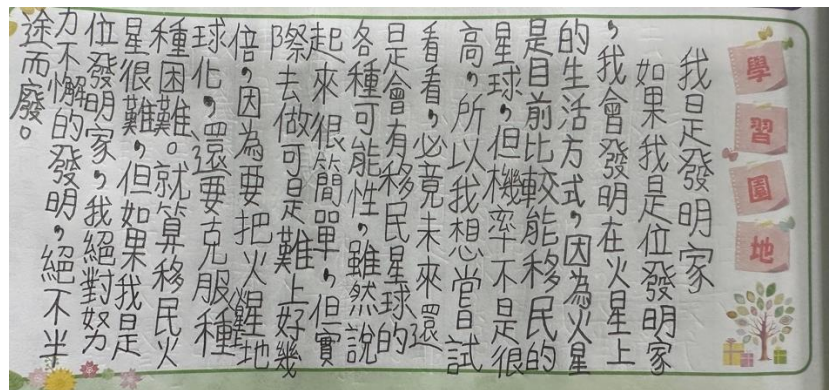 學習園地
我是發明家
如果我是位發明家
，我會發明在火星上
的生活方式，因為火星
是目前比較能移民的
星球，但機率不是很
高，所以我想嘗試
看看，必竟未來還
是會有移民星球的
各種可能性，雖然說
起來很簡單，但實
際去做可是難上好幾
倍，因為要把火星地
球化，還要克服種
種困難。就算移民火
星很難，但如果我是
位發明家，我絕對努
力不懈的發明，絕不半
途而廢。